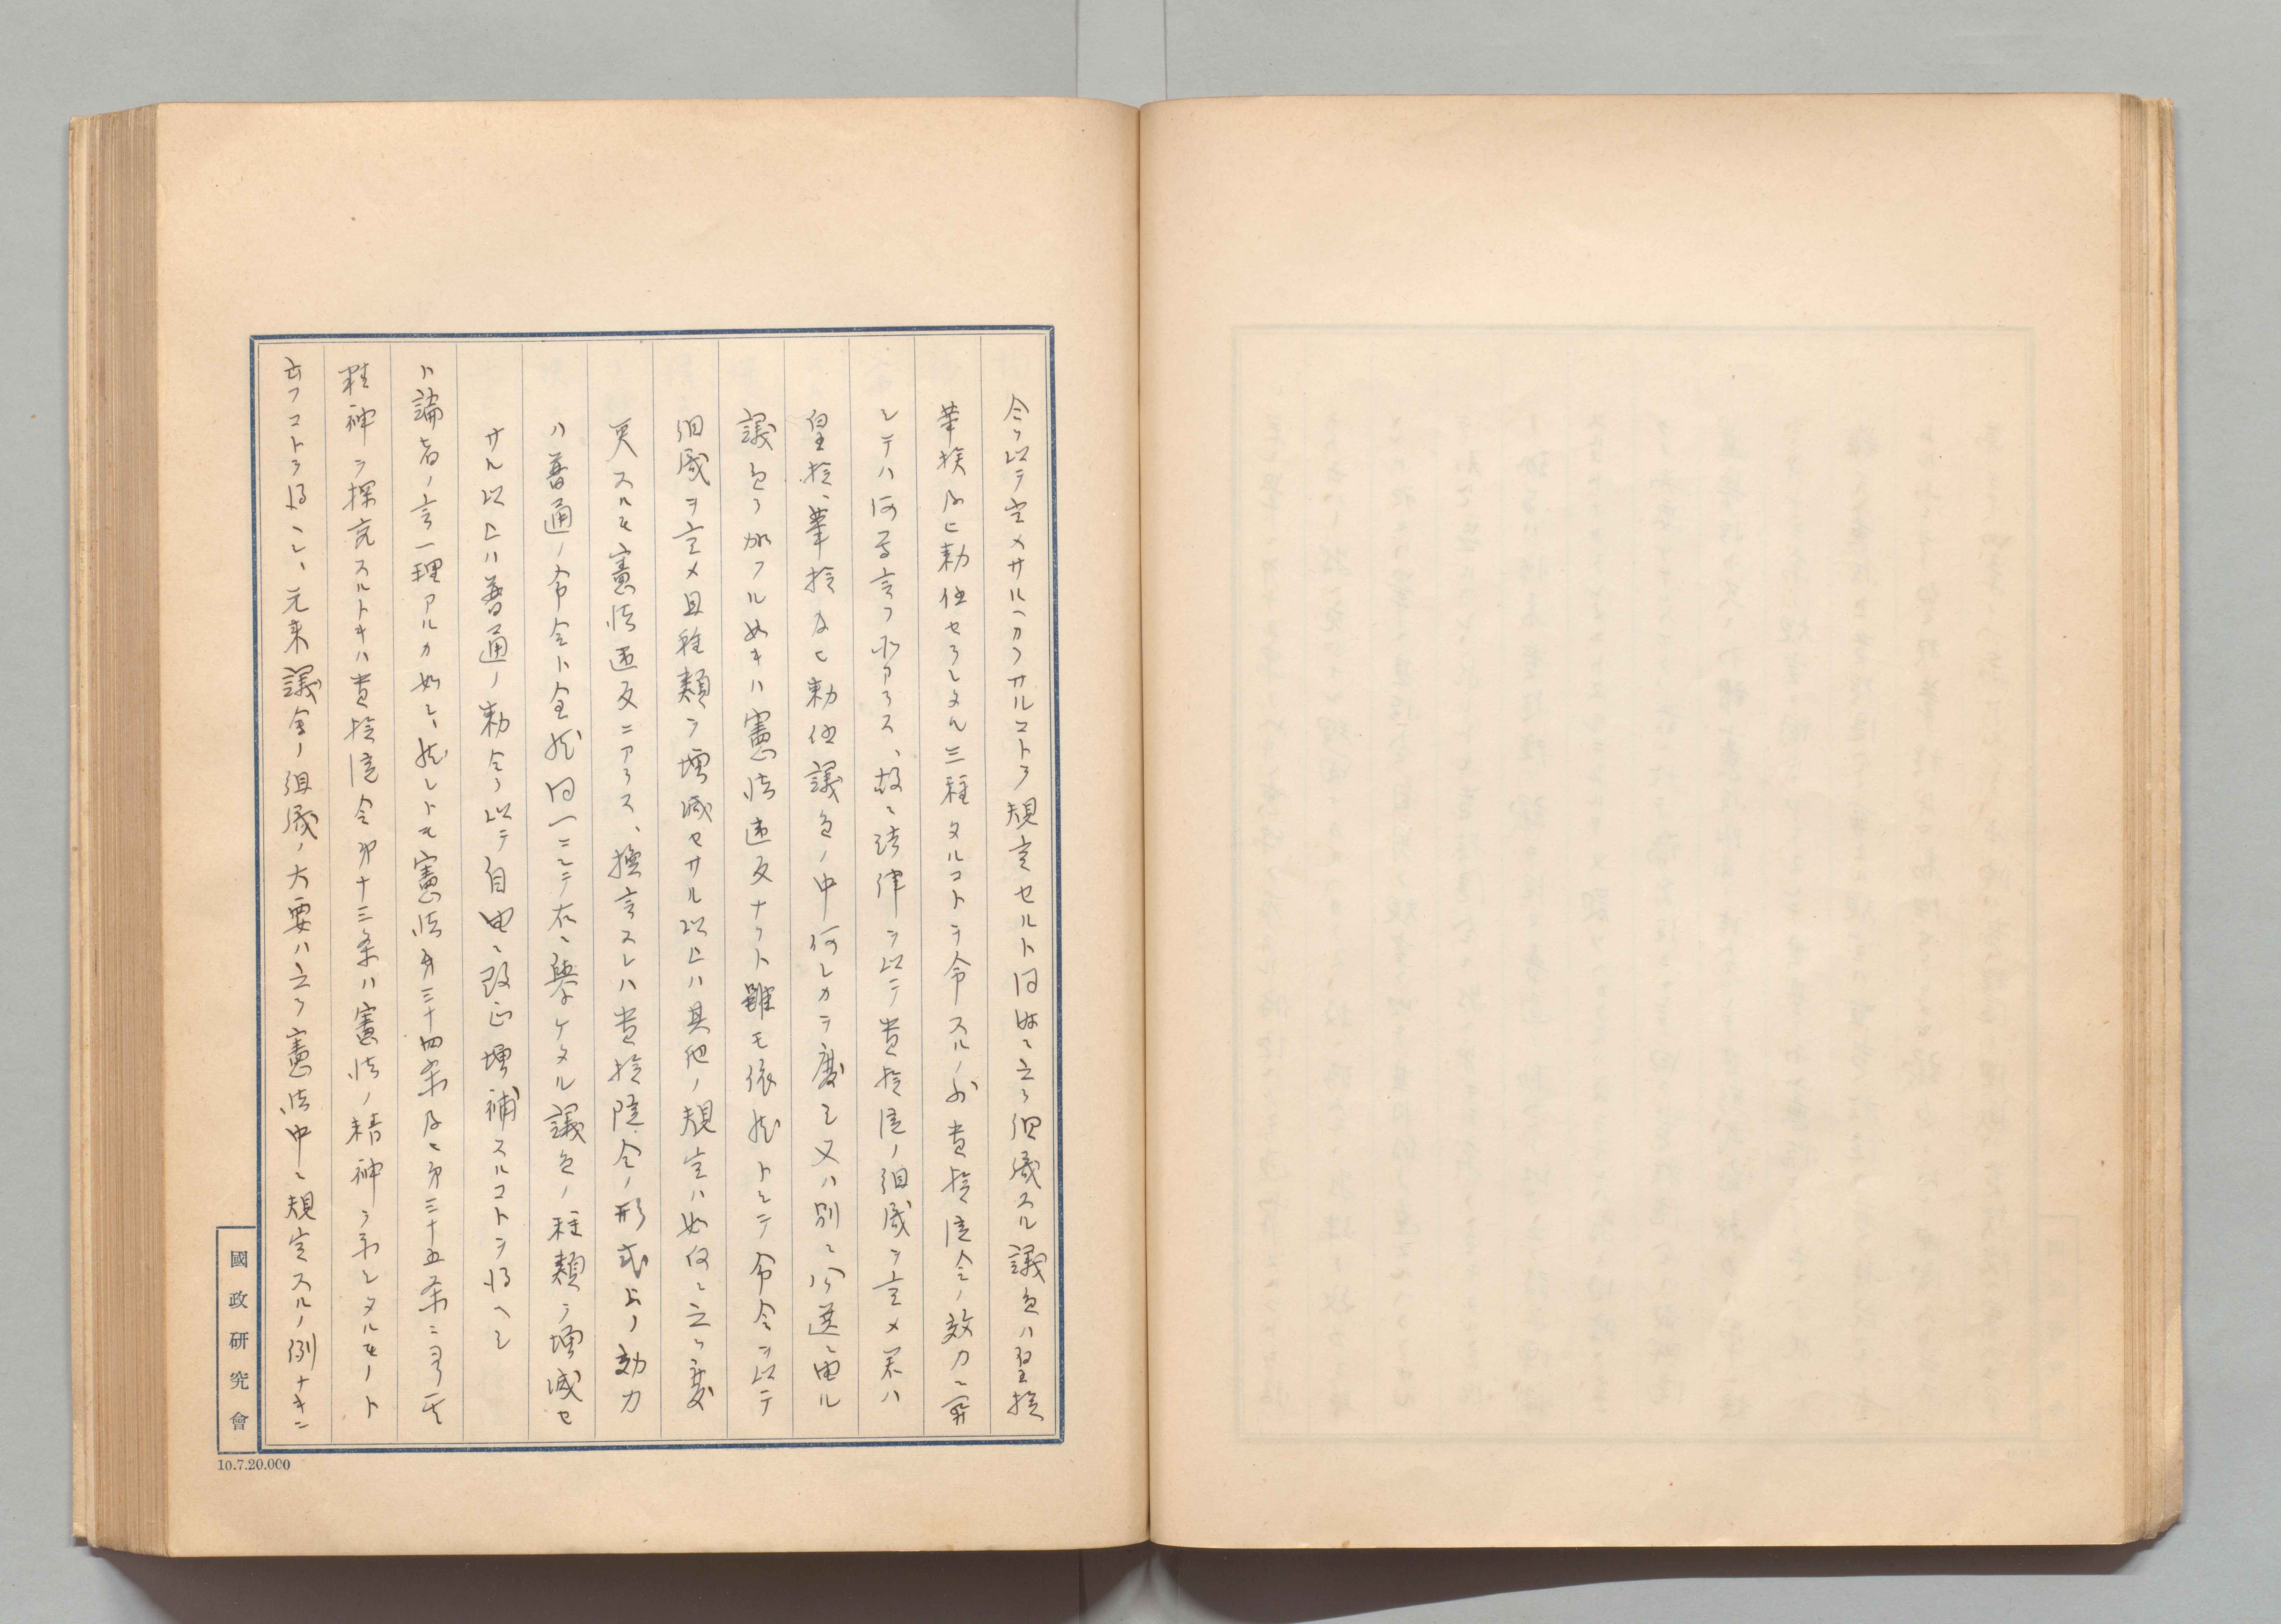 令ヲ以テ定メサルヘカラサルコトヲ規定セルト同時ニ之ヲ組織スル議員ハ皇族
華族及ヒ勅任セラレタル三種タルコトヲ命スルノ外貴族院令ノ効力ニ関
シテハ何等言フ所アラス、故ニ法律ヲ以テ貴族院ノ組成ヲ定メ若ハ
皇族、華族及ヒ勅任議員ノ中何レカヲ廃シ又ハ別ニ公選ニ由ル
議員ヲ加フル如キハ憲法違反ナリト雖モ依然トシテ命令ヲ以テ
組成ヲ定メ且種類ヲ増減セサル以上ハ其他ノ規定ハ如何ニ之ヲ変
更スルモ憲法違反ニアラス、換言スレハ貴族院令ノ形式上ノ効力
ハ普通ノ命令ト全然同一ニシテ右ニ挙ケタル議員ノ種類ヲ増減セ
サル以上ハ普通ノ勅令ヲ以テ自由ニ改正増補スルコトヲ得ヘシ
ト論者ノ言一理アルカ如シ、然レトモ憲法第三十四条及ヒ第三十五条ニ
精神ヲ探究スルトキハ貴族院令第十三条ハ憲法ノ精神ヲ示シタルモノト
云フコトヲ得ヘシ、元来議会ノ組織ノ大要ハ之ヲ憲法中ニ規定スルノ例ナキニ
國政研究會
10.7.20.000